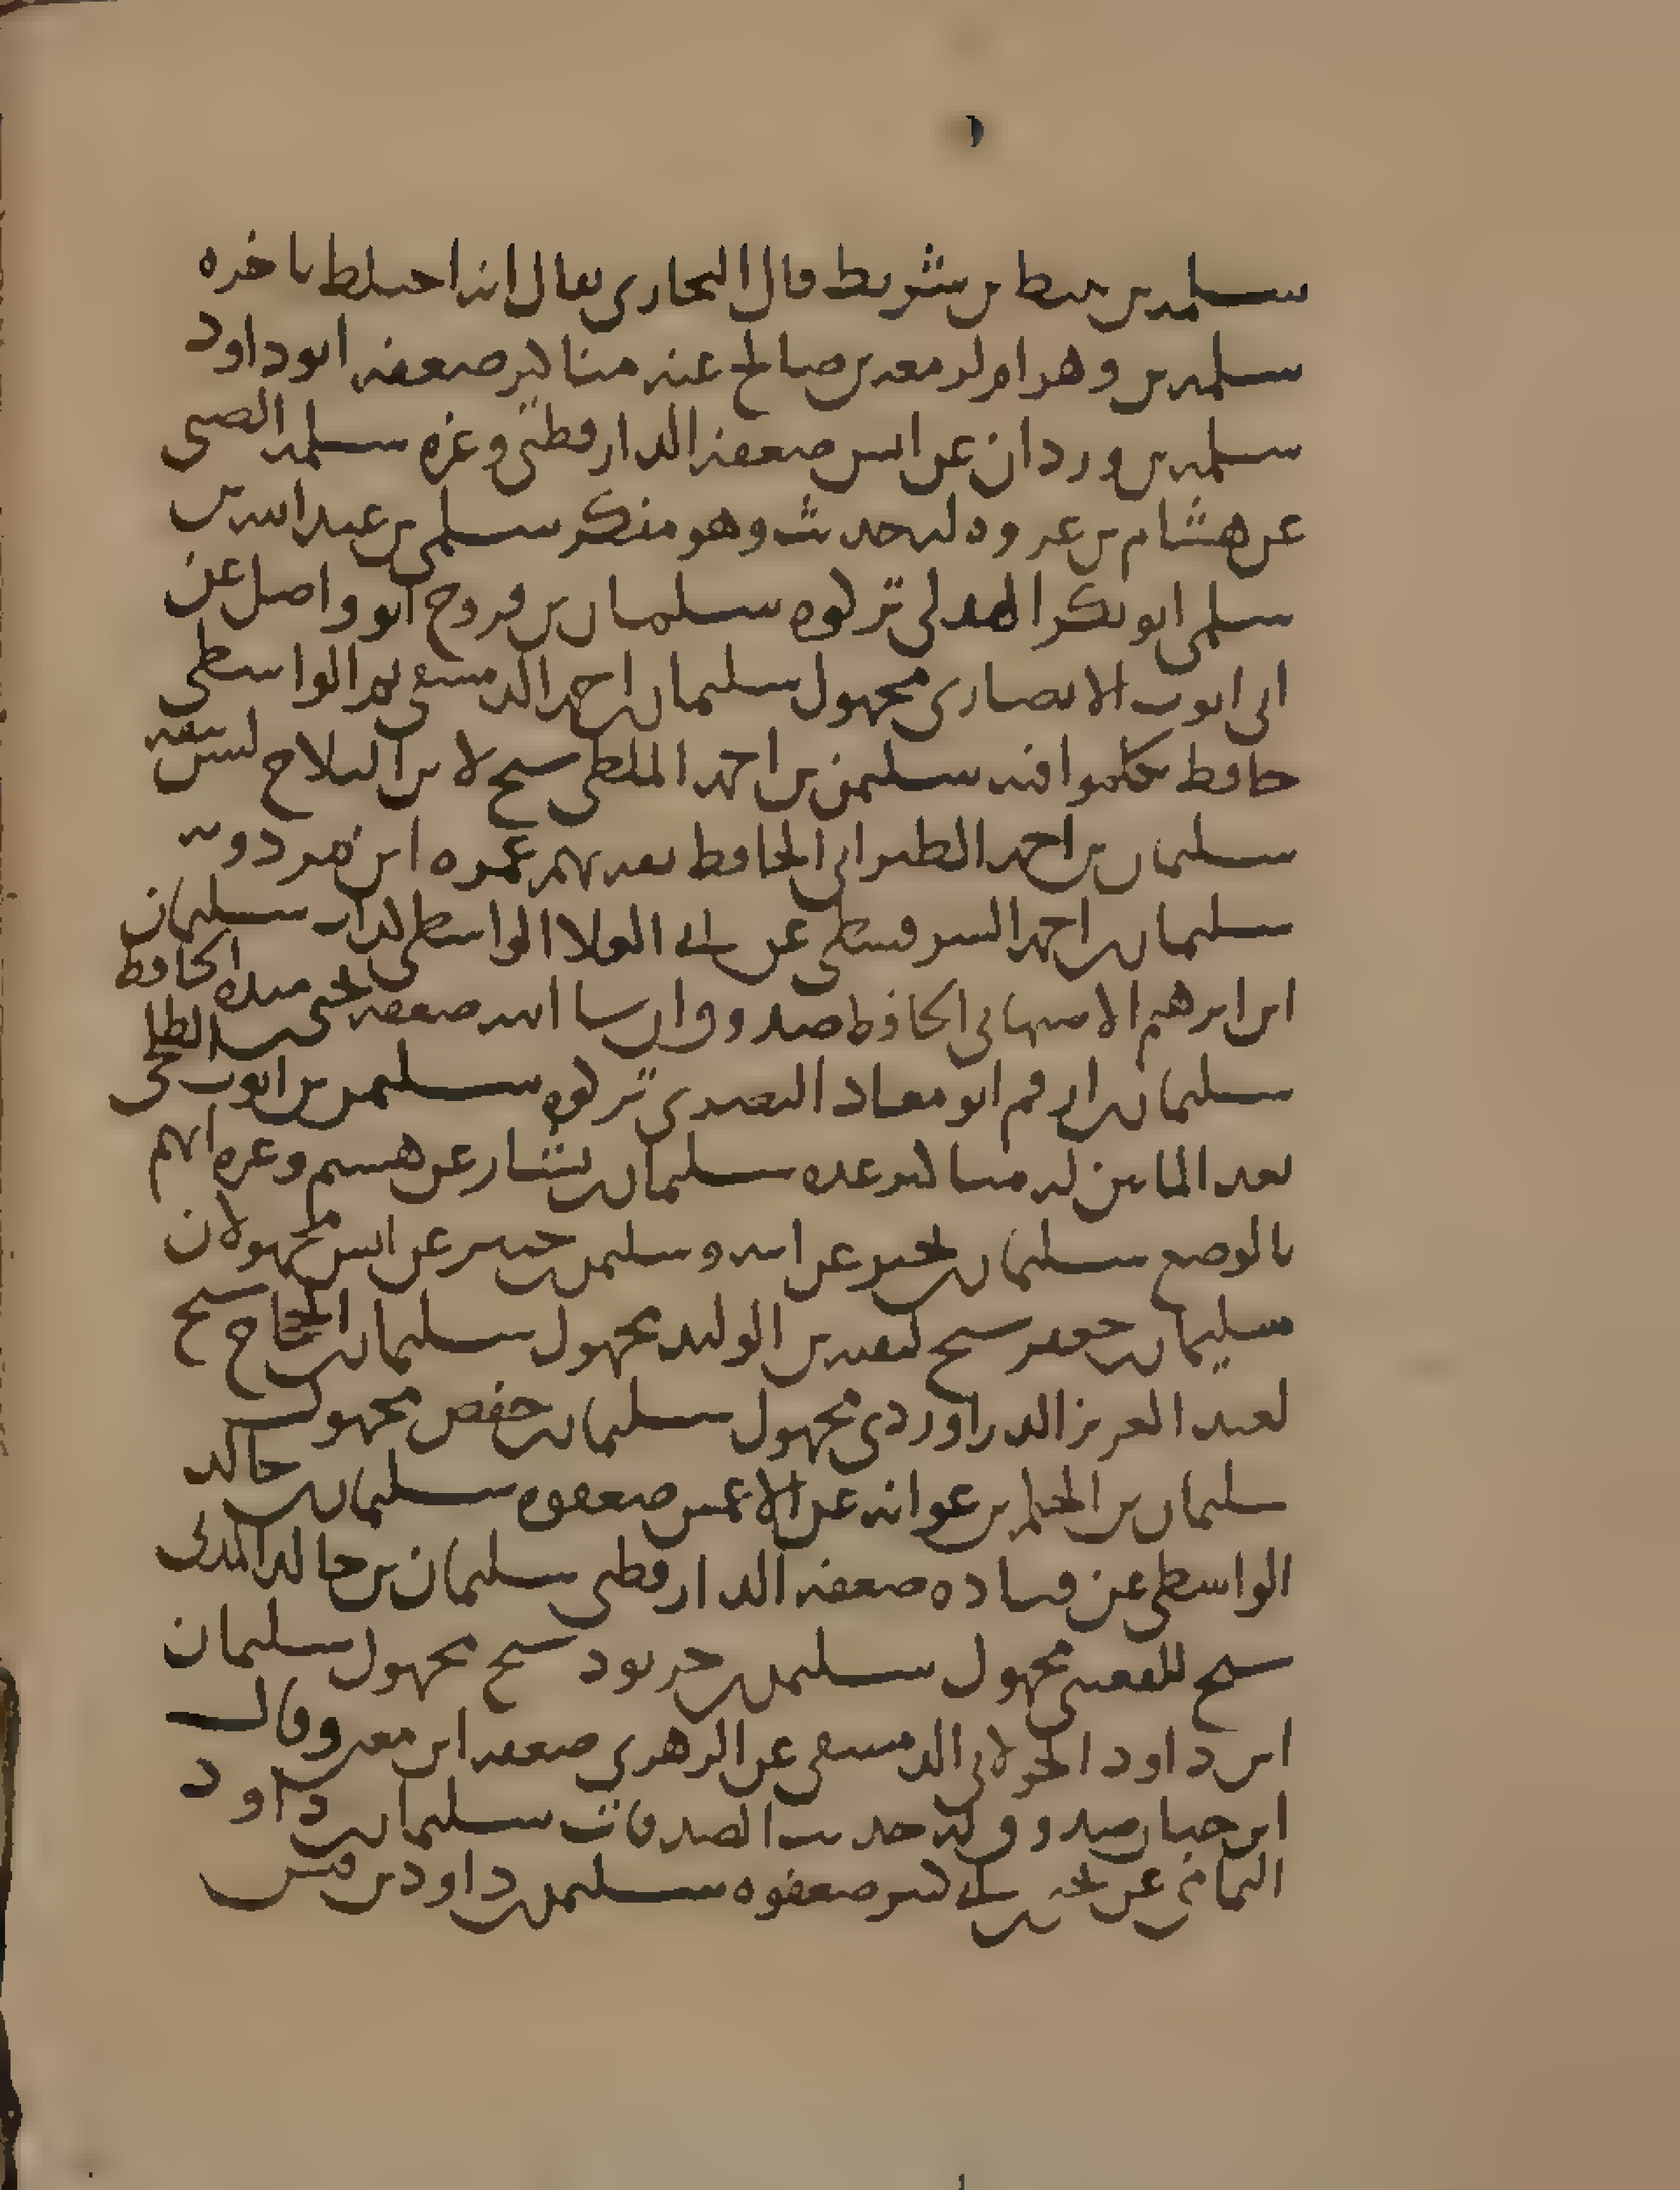 سلمه بن نبيط بن شريط قال البخاري يقال انه اختلط باخره
سلمه بن وهرام ولزمعه بن صالح عنه مناكير ضعفه ابو داود
سلمه بن وردان عن انس ضعفه الدارقطني وغيره سلمه الضبي
عن هشام بن عروه له حديث وهو منكر سلمى بن عبد الله بن
سلمى ابو بكر الهذلي تركوه سليمان بن فروخ ابو واصل عن
ابي ايوب الانصاري مجهول سليمان بن احمد الدمشقي ثم الواسطي
حافظ تكلموا فيه سليمن بن احمد الملطي شيخ لابن الثلاج ليس بثقه
سليمان بن احمد الطبراني الحافظ ثقه يهم غمزه ابن مردويه
سليمان بن احمد السرقسطي عن ابي العلا الواسطي كذاب سليمان
ابن ابرهيم الاصبهاني الحافظ صدوق ان شا الله ضعفه يحيى بن منده الحافظ
سليمان بن ارقم ابو معاذ البصري تركوه سليمن بن ايوب الطلحي
بعد الماتين له مناكير عده سليمان بن بشار عن هشيم وغيره اتهم
بالوضع سليمان بن عن ابيه وسليمن بن عن انس مجهولان
سليمان بن جعفر شيخ لبقيه بن الوليد مجهول سليمان بن الحجاج شيخ
لعبد العزيز الدراوردي مجهول سليمان بن حفص مجهول
سليمان بن الحكم بن عوانه عن الاعمش ضعفوه سليمان بن خالد
الواسطي عن قتاده ضعفه الدارقطني سليمان بن خالد المدني
شيخ للقعنبي مجهول سليمن بن خربوذ شيخ مجهول سليمان
ابن داود الخولاني الدمشقي عن الزهري ضعفه ابن معين وقال
ابن حبان صدوق له حديث الصدقات سليمان بن داود
اليمامي عن يحيى بن ابي كثير ضعفوه سليمن بن داود بن قيس